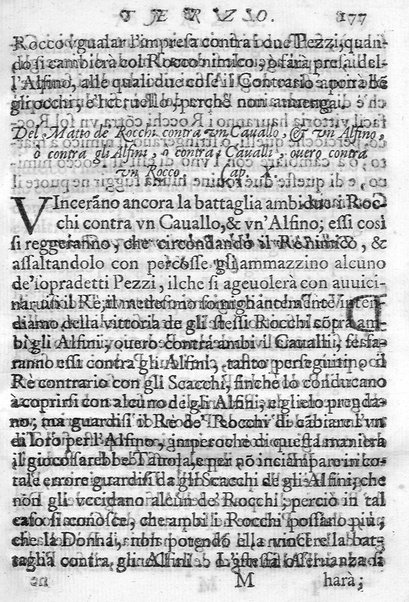 TERZO. 177
Rocco vgualar l'impresa contra i due Pezzi, quan-
do si cambierà col Rocco nimico, o farà presa del-
l'Alfino, alle quali due cose il Contrario aponerà
gli occhi, e
perche non auuenga.
Del Matto de Rocchi contra vn Cauallo, & vn Alfino,
ò contra gli Alfini, o contra i Caualli, ouero contra
vn Rocco. Cap. 4.
VInceràno ancora la battaglia ambidue i Roc-
chi contra vn Cauallo, & vn'Alfino; essi così
si reggeranno, che circondando il Rè nimico, &
assaltandolo con percosse gli ammazzino alcuno
de'sopradetti Pezzi, ilche si ageuolerà con auuici-
narui il Rè, il medesimo
diamo della vittoria de gli stessi Rocchi cõtra am-
bi gli Alfini, ouero contra ambi i Caualli, se fa-
ranno essi contra gli Alfini, tanto perseguitino il
Rè contrario con gli Scacchi, finche lo conducano
à coprirsi con alcuno de gli Alfini, e glielo prenda-
no; ma guardisi il Re de' Rocchi di cãbiare l'vn
di loro per l'Alfino, imperoche di questa maniera
il giuoco sarebbe Tauola, e per nõ inciampare in co-
tale errore guardisi da gli Scacchi de gli Alfini, che
non gli vccidano alcun de' Rocchi; perciò in tal
caso si conosce, che ambi li Rocchi possano più,
che la Donna, non potendo ella vincer la bat-
taglia contra gli Alfini. L'istessa osseruanza si
M harà;